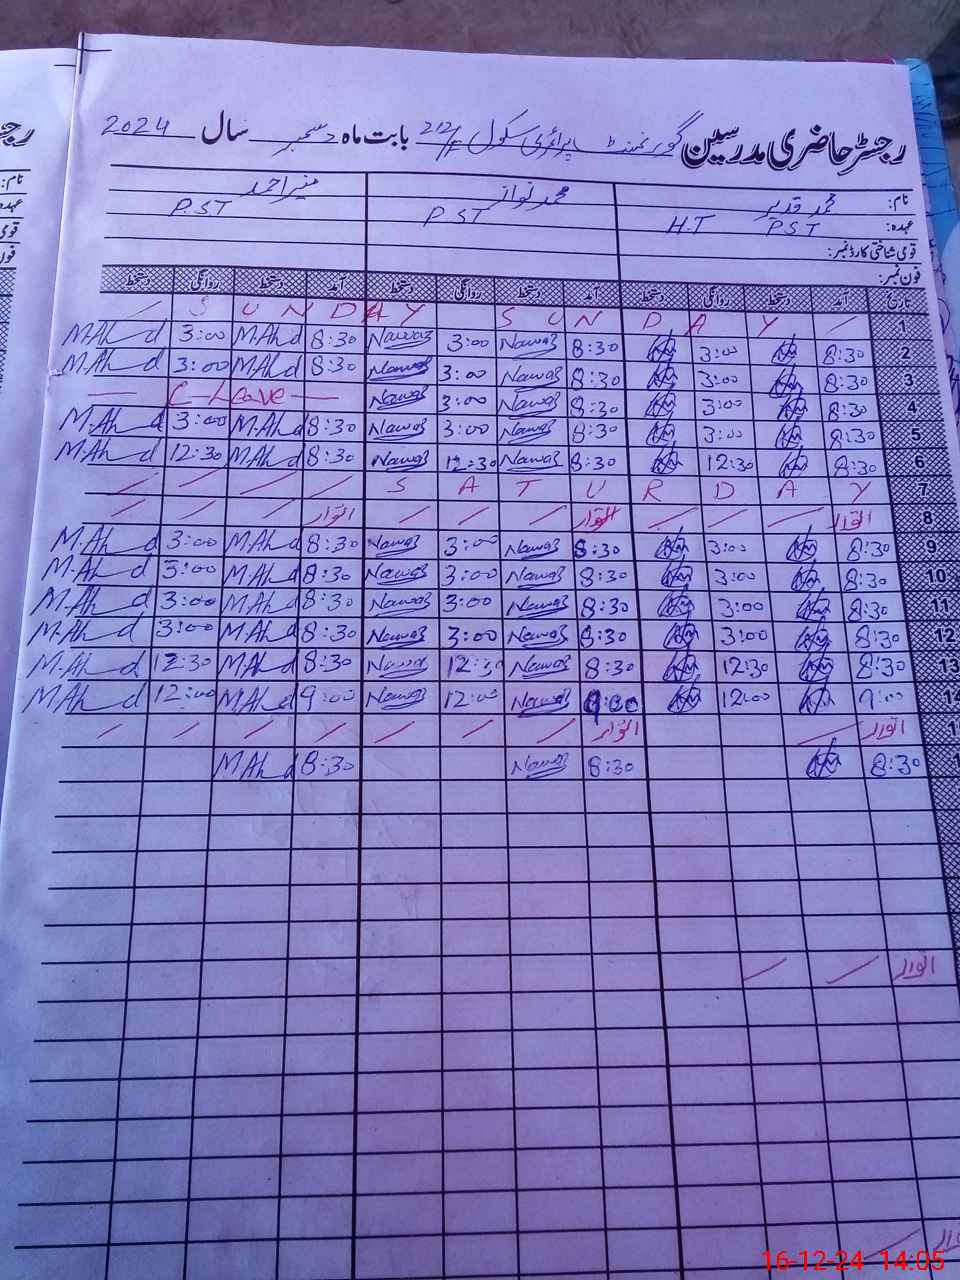 رجسٹر حاضری مدرسین گورنمنٹ پرائمری سکول 212/F بابت ماہ دسمبر سال 2024
نام: محمد قدیر محمد نواز منیر احمد
عہدہ: H.T PST P.ST P.ST
قومی شناختی کارڈ نمبر:
فون نمبر:
تاریخ آمد دستخط روانگی دستخط آمد دستخط روانگی دستخط آمد دستخط روانگی دستخط
1 SUNDAY SUNDAY
2 8:30 3:00 8:30 Nawaz 3:00 Nawaz 8:30 M.Ahd 3:00 M.Ahd
3 8:30 3:00 8:30 Nawaz 3:00 Nawaz 8:30 M.Ahd 3:00 M.Ahd
4 8:30 3:00 8:30 Nawaz 3:00 Nawaz C-Leave
5 8:30 3:00 8:30 Nawaz 3:00 Nawaz 8:30 M.Ahd 3:00 M.Ahd
6 8:30 12:30 8:30 Nawaz 12:30 Nawaz 8:30 M.Ahd 12:30 M.Ahd
7 SATURDAY
8 اتوار اتوار اتوار
9 8:30 3:00 8:30 Nawaz 3:00 Nawaz 8:30 M.Ahd 3:00 M.Ahd
10 8:30 3:00 8:30 Nawaz 3:00 Nawaz 8:30 M.Ahd 3:00 M.Ahd
11 8:30 3:00 8:30 Nawaz 3:00 Nawaz 8:30 M.Ahd 3:00 M.Ahd
12 8:30 3:00 8:30 Nawaz 3:00 Nawaz 8:30 M.Ahd 3:00 M.Ahd
13 8:30 12:30 8:30 Nawaz 12:30 Nawaz 8:30 M.Ahd 12:30 M.Ahd
14 9:00 12:00 9:00 Nawaz 12:00 Nawaz 9:00 M.Ahd 12:00 M.Ahd
اتوار اتوار
8:30 8:30 Nawaz 8:30 M.Ahd
اتوار
16-12-24 14:05